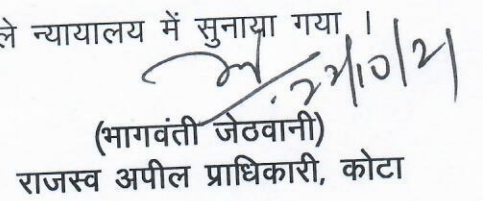 ले न्यायालय में सुनाया गया ।
22/10/21
(भागवंती जेठवानी)
राजस्व अपील प्राधिकारी, कोटा